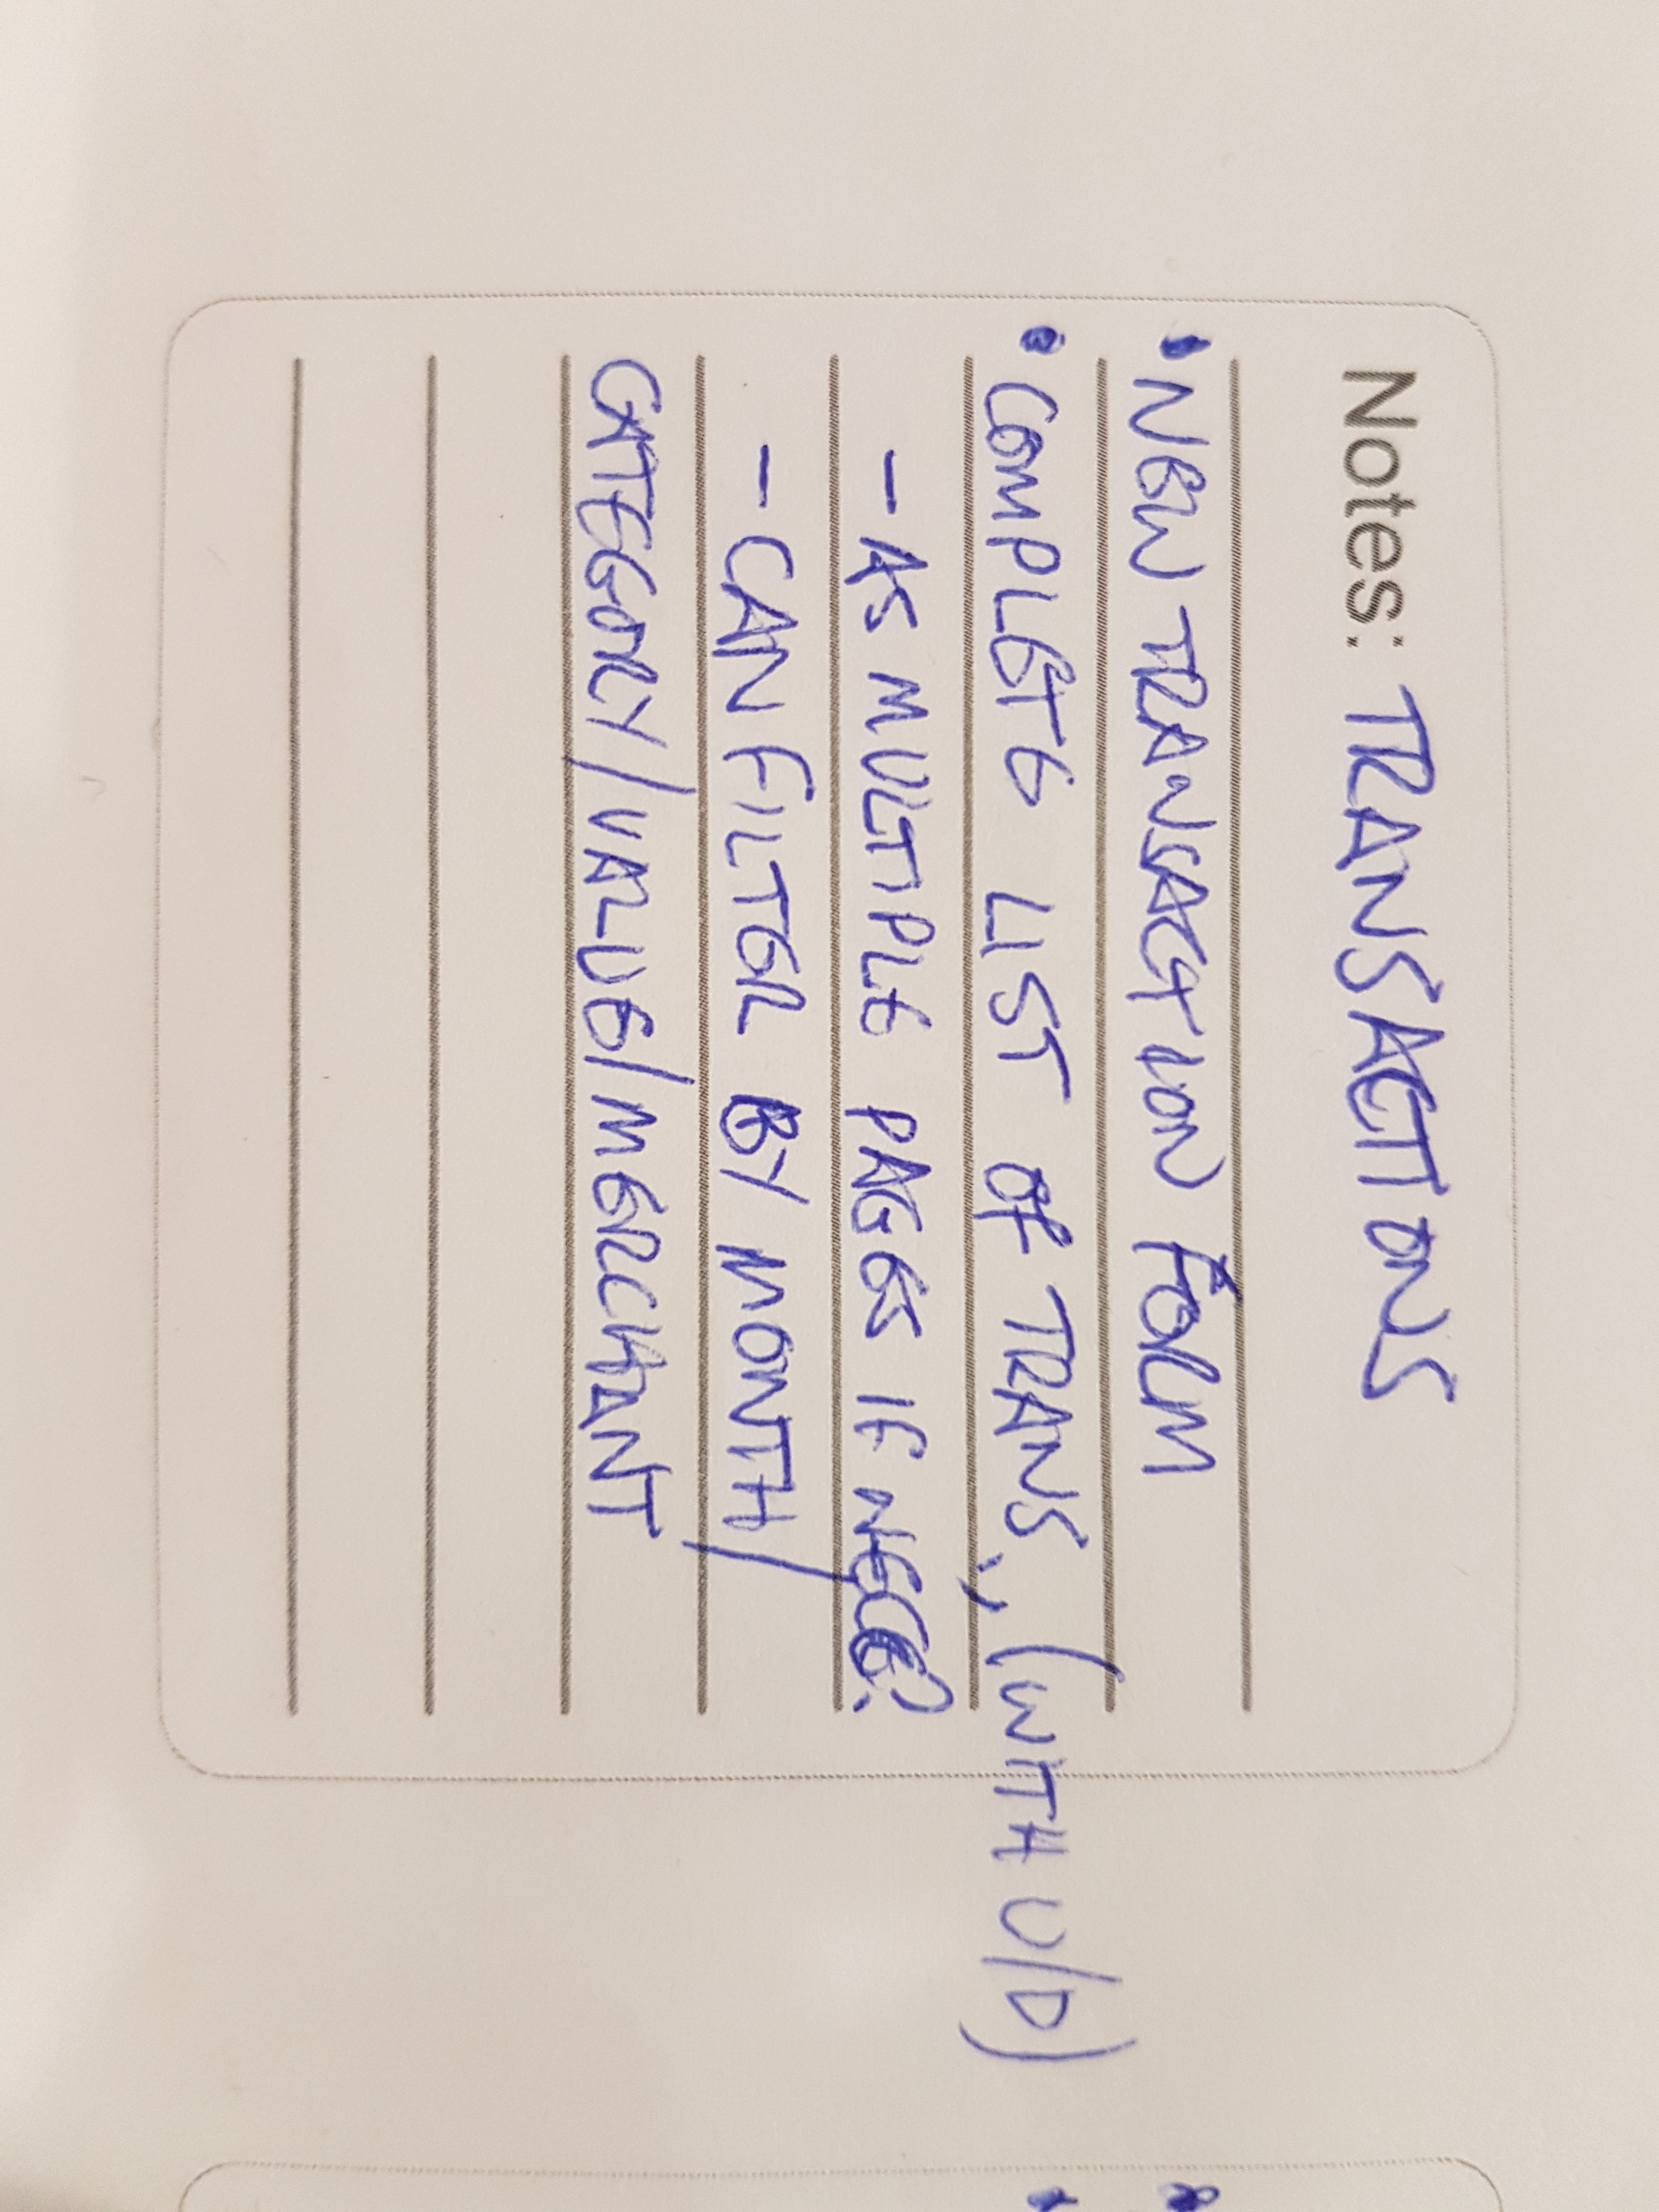 Notes: TRANSACTIONS
• NEW TRANSACTION FORM
• COMPLETE LIST OF TRANS., (WITH U/D)
- AS MULTIPLE PAGES IF NECC?
- CAN FILTER BY MONTH/
CATEGORY/VALUE/MERCHANT